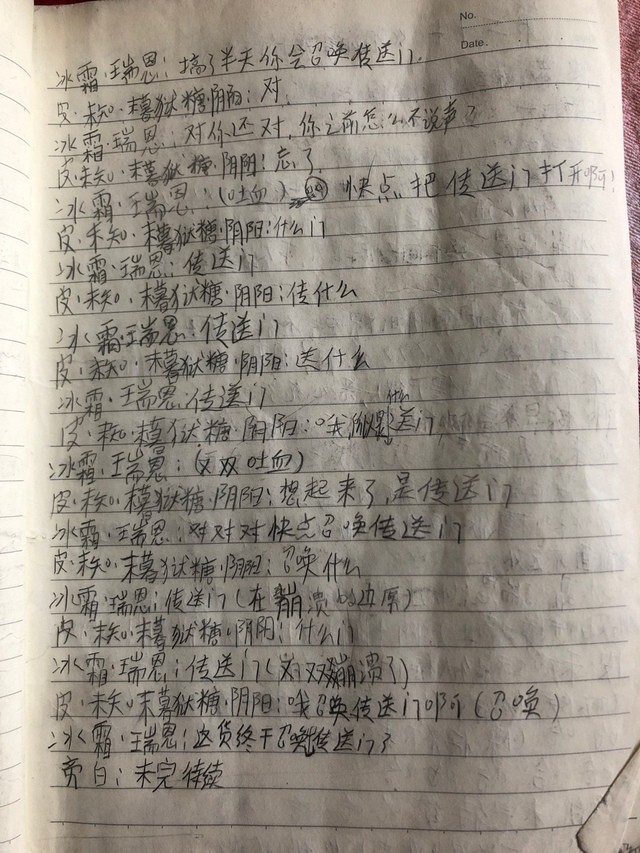 No.
Date.
冰霜·瑞恩：搞了半天你会召唤传送门.
皮·未知·末暮狱糖·阴阳：对.
冰霜·瑞恩：对你还对，你之前怎么不说声？
皮·未知·末暮狱糖·阴阳：忘了
冰霜·瑞恩：(吐血) 快点把传送门打开啊!
皮·未知·末暮狱糖·阴阳：什么门
冰霜·瑞恩：传送门
皮·未知·末暮狱糖·阴阳：传什么
冰霜·瑞恩：传送门
皮·未知·末暮狱糖·阴阳：送什么
冰霜·瑞恩：传送门
皮·未知·末暮狱糖·阴阳：哦，什么送门
冰霜·瑞恩：(又双吐血)
皮·未知·末暮狱糖·阴阳：想起来了，是传送门
冰霜·瑞恩：对对对快点召唤传送门
皮·未知·末暮狱糖·阴阳：召唤什么
冰霜·瑞恩：传送门(在崩溃的边原)
皮·未知·末暮狱糖·阴阳：什么门
冰霜·瑞恩：传送门(又双双崩溃了)
皮·未知·末暮狱糖·阴阳：哦召唤传送门啊(召唤)
冰霜·瑞恩：这货终于召唤传送门了
旁白：未完待续